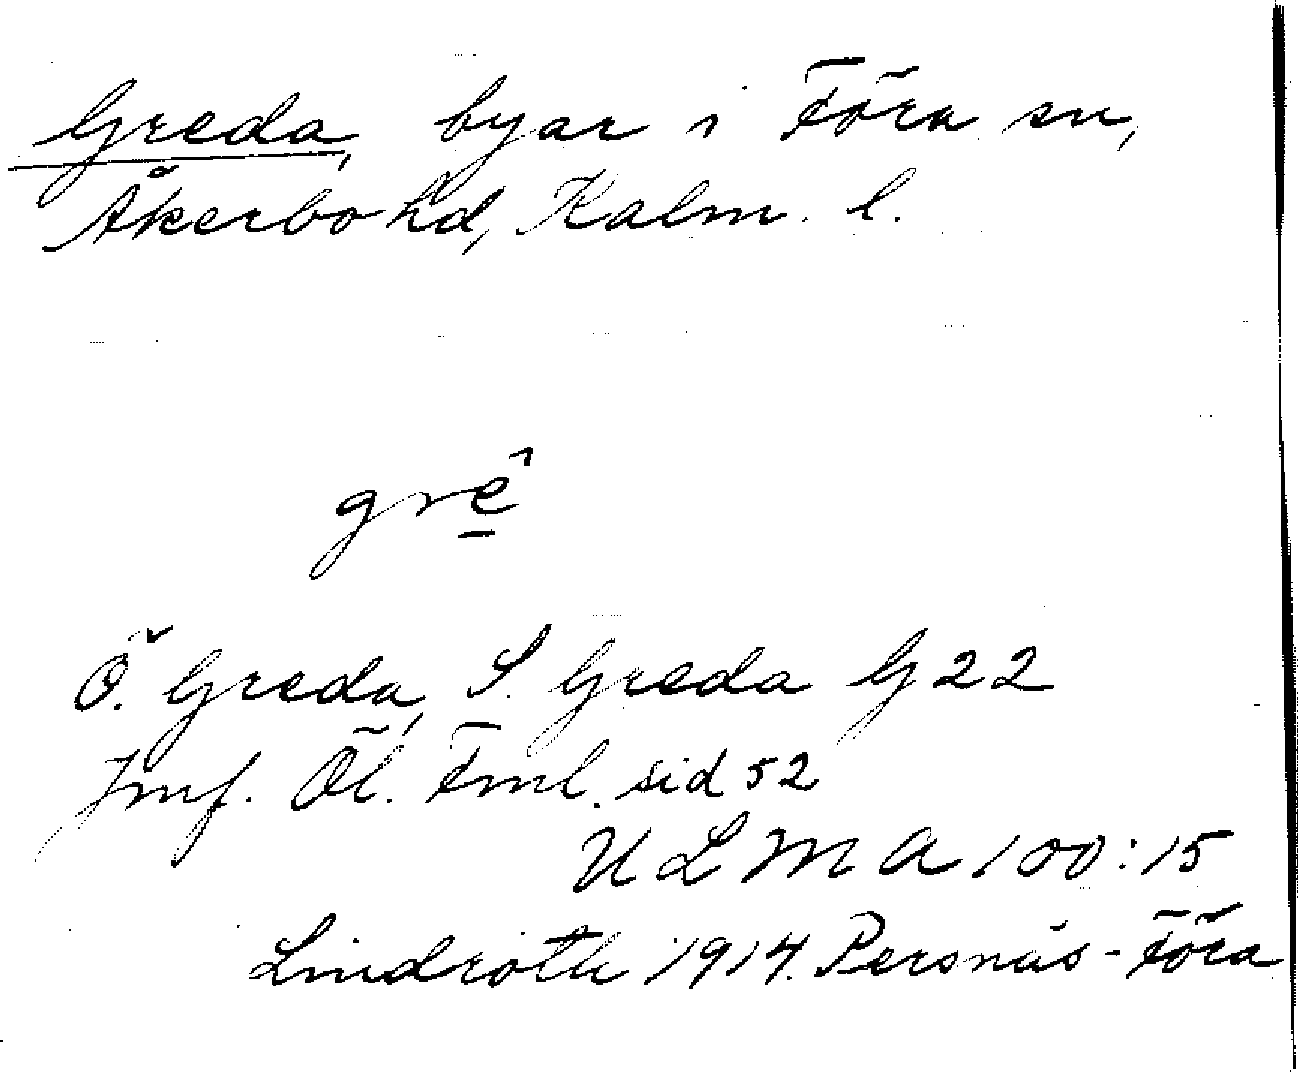 Greda, byar i Föra sn,
Åkerbo hd, Kalm. l.
grê̱
Ö. Greda, S. Greda G 22
Jmf. Öl. Fml. sid 52
ULMA 100:15
Lindroth 1914. Persnäs-Föra